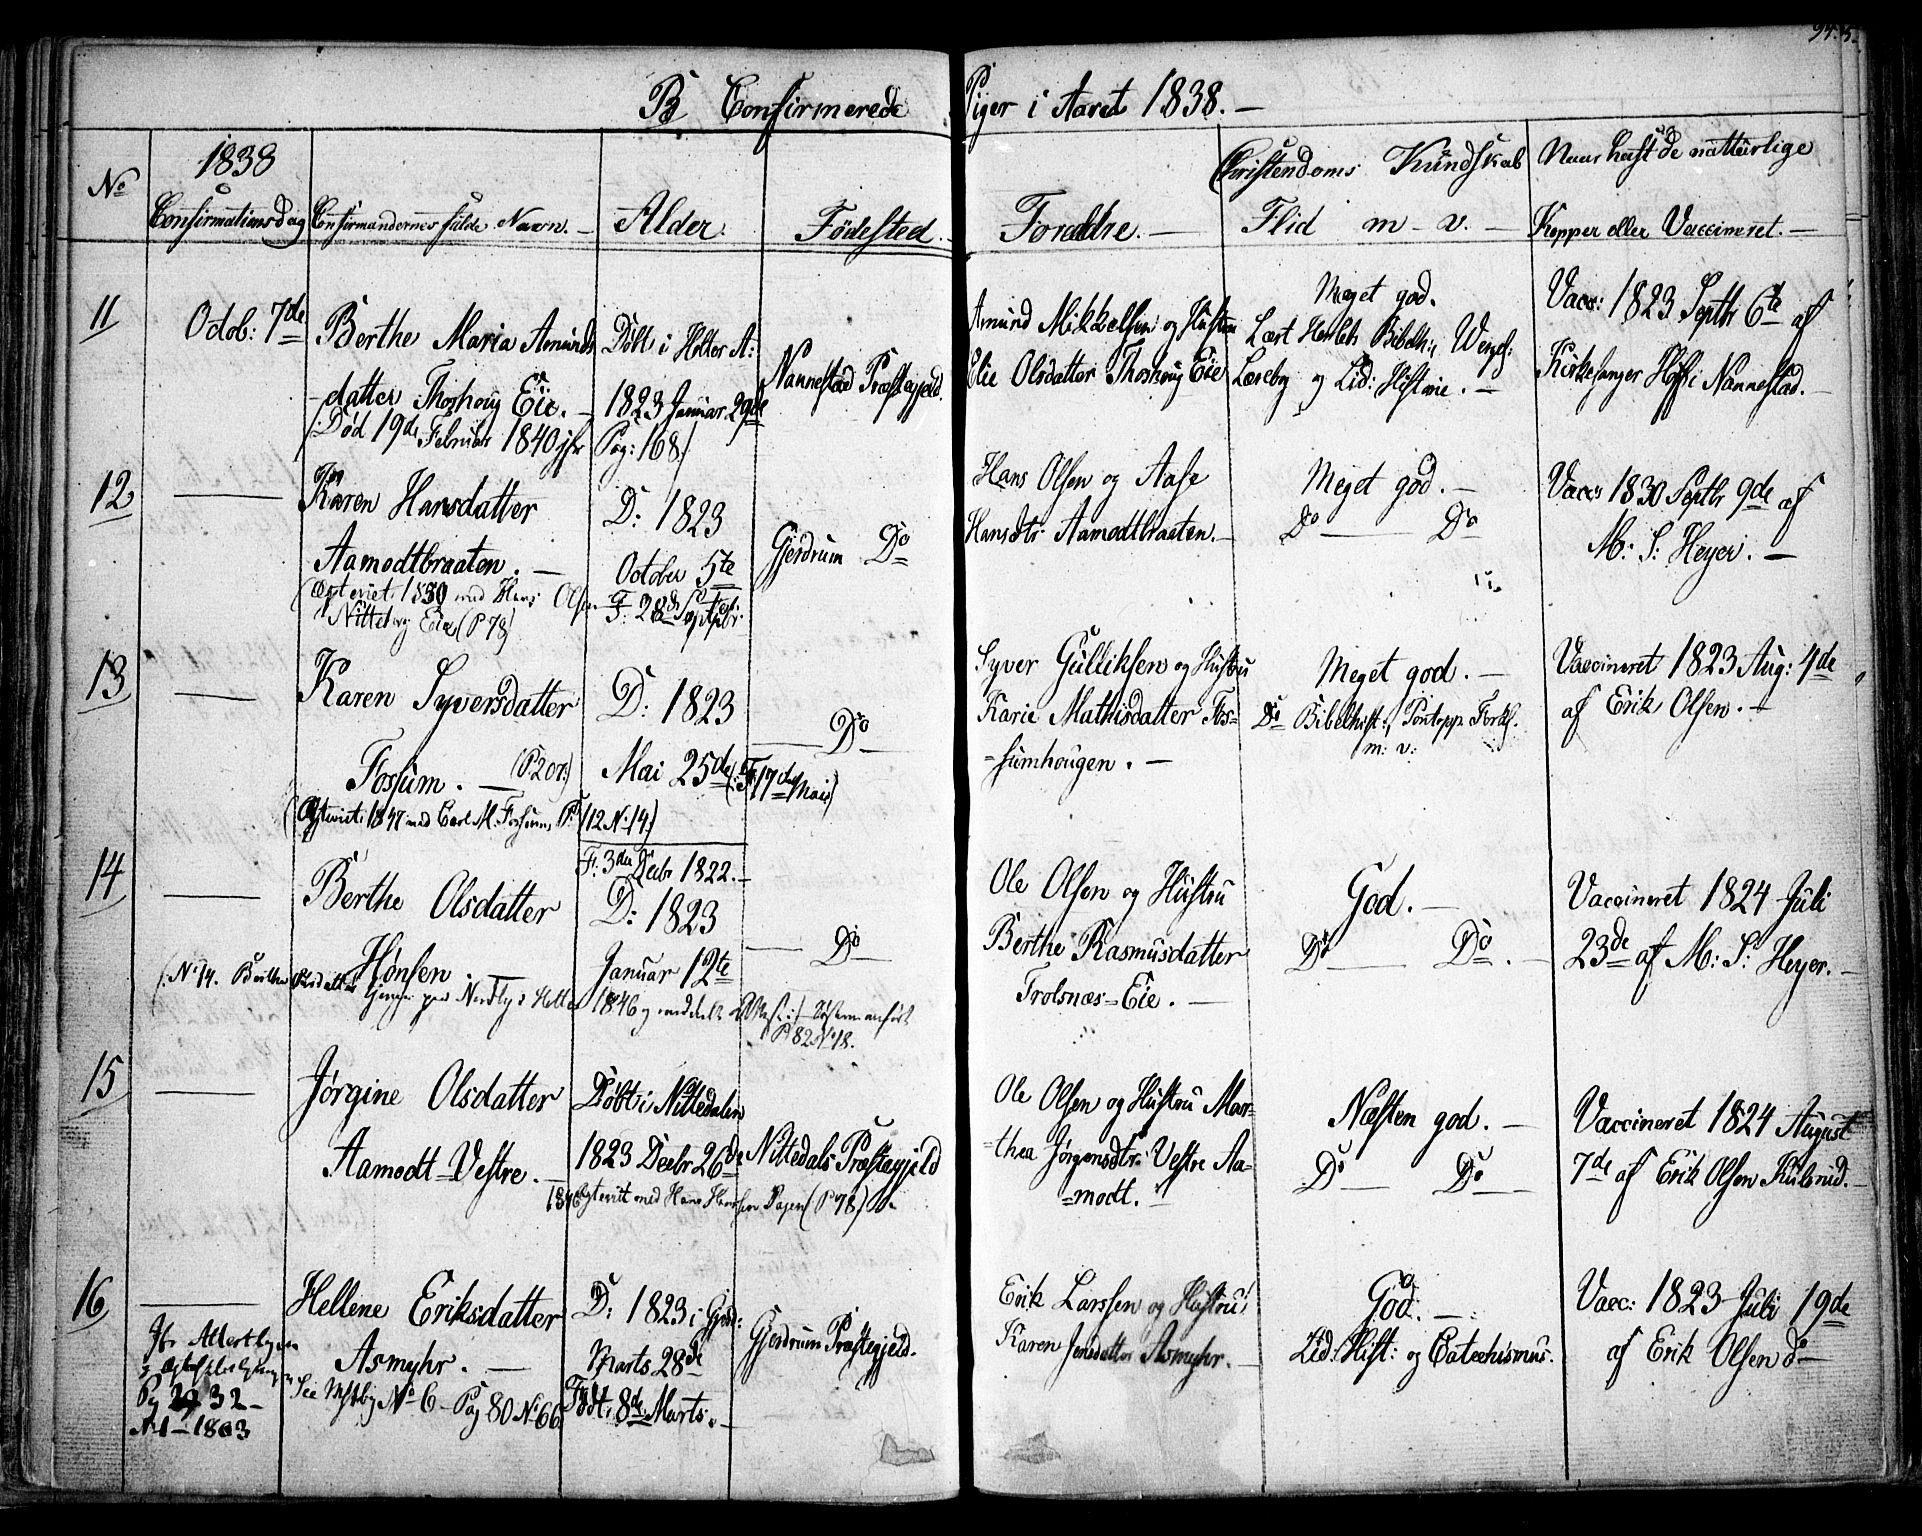 B Confirmerede Piger i Aaret 1838. —
No
1838
Confirmationsdag
Confirmandernes fulde Navn. —
Alder.
Fødested.
Forældre. —
Christendoms Kundskab
Flid m - v. —
Naar havt de naturlige
Kopper eller Vaccineret. —
11
Octob: 7de
Berthe Maria Amunds
datter Thoshoug Eie. —
Død 19de Februar 1840
Døbt i Holter A:
1823 Januar 29de
Pag: 168)
Nannestad Præstegjeld.
Amund Mikkelsen og Hustru
Elie Olsdatter Thoshoug Eie
Meget god.
Læst Herslebs Bibelh:
Lærebog og Lid: Historie. —
Vacc: 1823 Septbr 6te af
Kirkesanger Hoff i Nannestad. —
12
Karen Hansdatter
Aamodtbraaten. —
1850 med Hans Olsen
Eie (P 78)
D: 1823
October 5te
F. 28de Septbr:
Gjerdrum Do
Hans Olsen og Aase
Hansdtr: Aamodtbraaten. —
Meget god. —
Do — Do
Vacc 1830 Septbr 9de af
M: S: Heyer. —
13
Karen Syversdatter
Fossum. — (P. 207)
med Carl M. Fossum, P. 112 N. 14)
D: 1823
Mai 25de (F. 17de Mai)
Do
Syver Gulliksen og Hustru
Karie Mathisdatter Fos=
=sumhougen. —
Meget god. —
Do Bibelhist:, Pontopp Forkl.
m: v:
Vaccineret 1823 Aug: 4de
af Erik Olsen. —
14
Berthe Olsdatter
Hønsen
(N. 14. Berthe Olsdatter
F. 3de Decbr 1822. —
D: 1823
Januar 12te
1846
P 82 N 18.
Do
Ole Olsen og Hustru
Berthe Rasmusdatter
Trolsnæs=Eie. —
God. —
Do — Do. —
Vaccineret 1824 Juli
23de af M: S: Heyer. —
15
Jørgine Olsdatter
Aamodt=Vestre. —
Døbt i Nittedalen
1823 Decbr 26de
med Hans Hansen (P 78)
Nittedals Præstegjeld
Ole Olsen og Hustru Mar=
=thea Jørgensdtr: Vestre Aa=
=modt.
Næsten god. —
Do — Do —
Vaccineret 1824 August
7de af Erik Olsen Kulsrud. —
16
Hellene Eriksdatter
Asmyhr. —
No 6 - Pag 80 No 66
Pg 32 —
N. 1 — 1803
D: 1823 i Gjerd:
Marts 28de
Født 8de Marts. —
Gjerdrum Præstegjeld.
Erik Larssen og Hustru
Karen Jensdatter Asmyhr. —
God. —
Lid: Hist: og Catechismus.
Vacc: 1823 Juli 19de
af Erik Olsen do